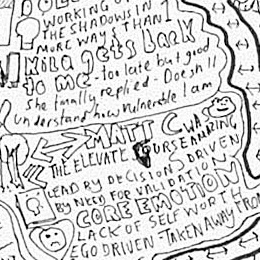 WORKING OF
THE SHADOWS IN 1
MORE WAYS THAN
gets back
to me - too late but good
She finally replied - Does he
understand how vulnerable I am
MATT C WAS
THE ELEVATE COURSE AMPING
LEAD BY DECISIONS DRIVEN
BY NEED FOR VALIDATION
CORE EMOTION
LACK OF SELF WORTH FROM
EGO DRIVEN TAKEN AWAY